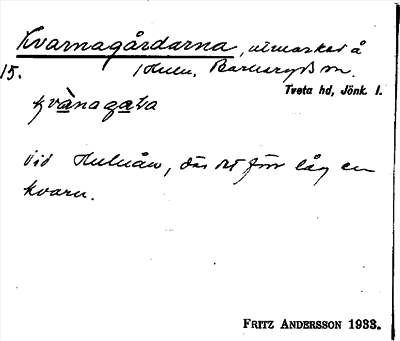 Kvarnagårdarna, utmarker å
15. Hulu, Barkeryds sn.
Tveta hd, Jönk. l.
kvànagaɫa
vid Huluån, där det förr låg en
kvarn.
FRITZ ANDERSSON 1933.